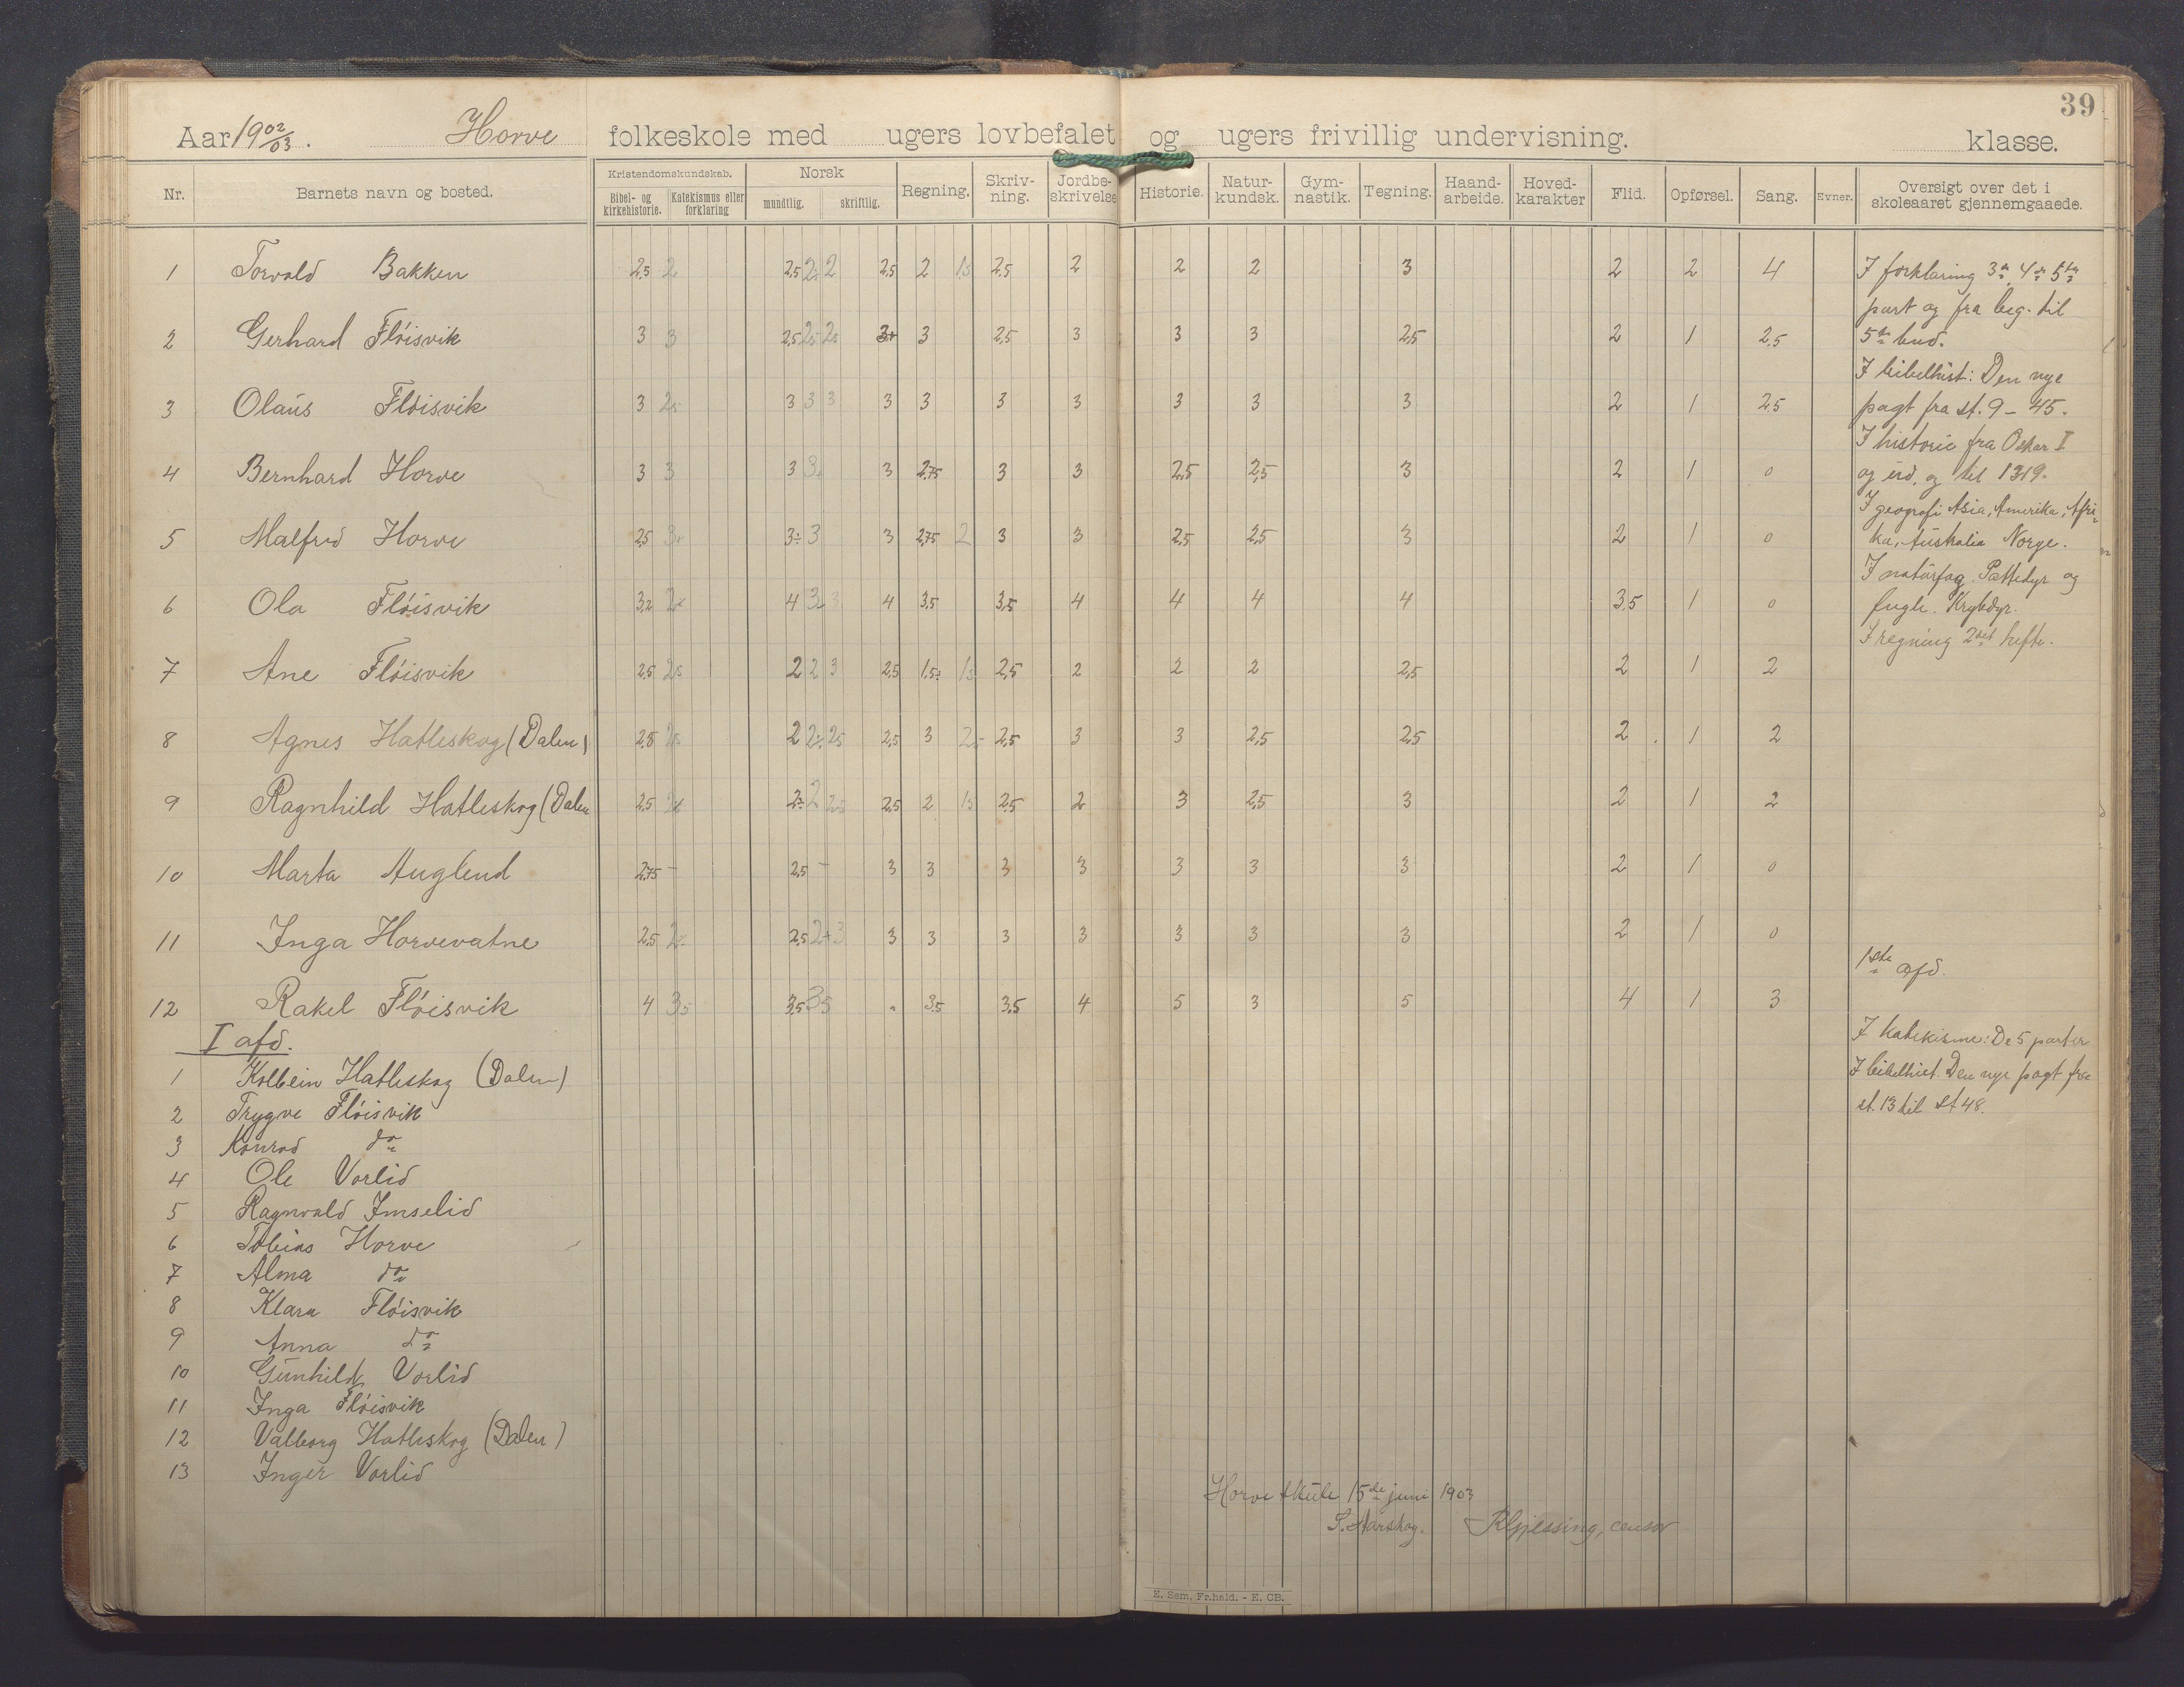 39
Aar 19 02/03. Horve folkeskole med ugers lovbefalet og ugers frivillig undervisning. klasse.
Nr. Barnets navn og bosted. Kristendomskundskab. Bibel- og kirkehistorie. Katekismus eller forklaring Norsk mundtlig. skriftlig. Regning. Skriv-ning. Jordbe-skrivelse Historie. Natur-kundsk. Gym-nastik. Tegning. Haand-arbeide. Hoved-karakter Flid. Opførsel. Sang. Evner. Oversigt over det i skoleaaret gjennemgaaede.
1 Torvald Bakken 2,5 2 2,5 2 2 2,5 2 1,5 2,5 2 2 2 3 2 2 4
2 Gerhard Fløisvik 3 3 2,5 2,5 2,5 3+ 3 2,5 3 3 3 2,5 2 1 2,5
3 Olaus Fløisvik 3 2,5 3 3 3 3 3 3 3 3 3 3 2 1 2,5
4 Bernhard Horve 3 3 3 3 3 2,75 3 3 2,5 2,5 3 2 1 0
5 Malfrid Horve 2,5 3+ 3÷ 3 3 2,75 2 3 3 2,5 2,5 3 2 1 0
6 Ola Fløisvik 3,2 2 4 3 3 4 3,5 3,5 4 4 4 4 3,5 1 0
7 Ane Fløisvik 2,5 2,5 2 2 3 2,5 1,5÷ 1,5 2,5 2 2 2 2,5 2 1 2
8 Agnes Hatleskog (Dalen) 2,8 2,5 2 2÷ 2,5 2,5 3 2,5 2,5 3 3 2,5 2,5 2 1 2
9 Ragnhild Hatleskog (Dalen 2,5 2 2÷ 2 2,5 2,5 2 1,5 2,5 2 3 2,5 3 2 1 2
10 Marta Auglend 2,75 – 2,5 – 3 3 3 3 3 3 3 2 1 0
11 Inga Horvevatne 2,5 2 2,5 2+ 3 3 3 3 3 3 3 3 2 1 0
12 Rakel Fløisvik 4 3,5 3,5 3,5 " 3,5 3,5 4 5 3 5 4 1 3
I afd.
1 Kolbein Hatleskog (Dalen)
2 Trygve Fløisvik
3 Konrad do
4 Ole Vorlid
5 Ragnvald Imselid
6 Tobias Horve
7 Alma do
8 Klara Fløisvik
9 Anna do
10 Gunhild Vorlid
11 Inga Fløisvik
12 Valborg Hatleskog (Dalen)
13 Inger Vorlid
I forklaring 3die, 4de 5te
part og fra beg. til
5te bud.
I bibelhist: Den nye
pagt fra st. 9 – 45.
I historie fra Oskar I
og ud, og til 1319.
I geografi Asia, Amerika, Afri-
ka, Australia Norge.
I naturfag. Pattedyr og
fugle. Krybdyr.
I regning 2det hefte.
1ste afd.
I katekisme: De 5 parter
I bibelhist. Den nye pagt fra
st. 13 til st 48.
Horve skule 15de juni 1903
S. Aarskog. Gjessing, censor
E. Sem, Fr.hald. - E. CB.